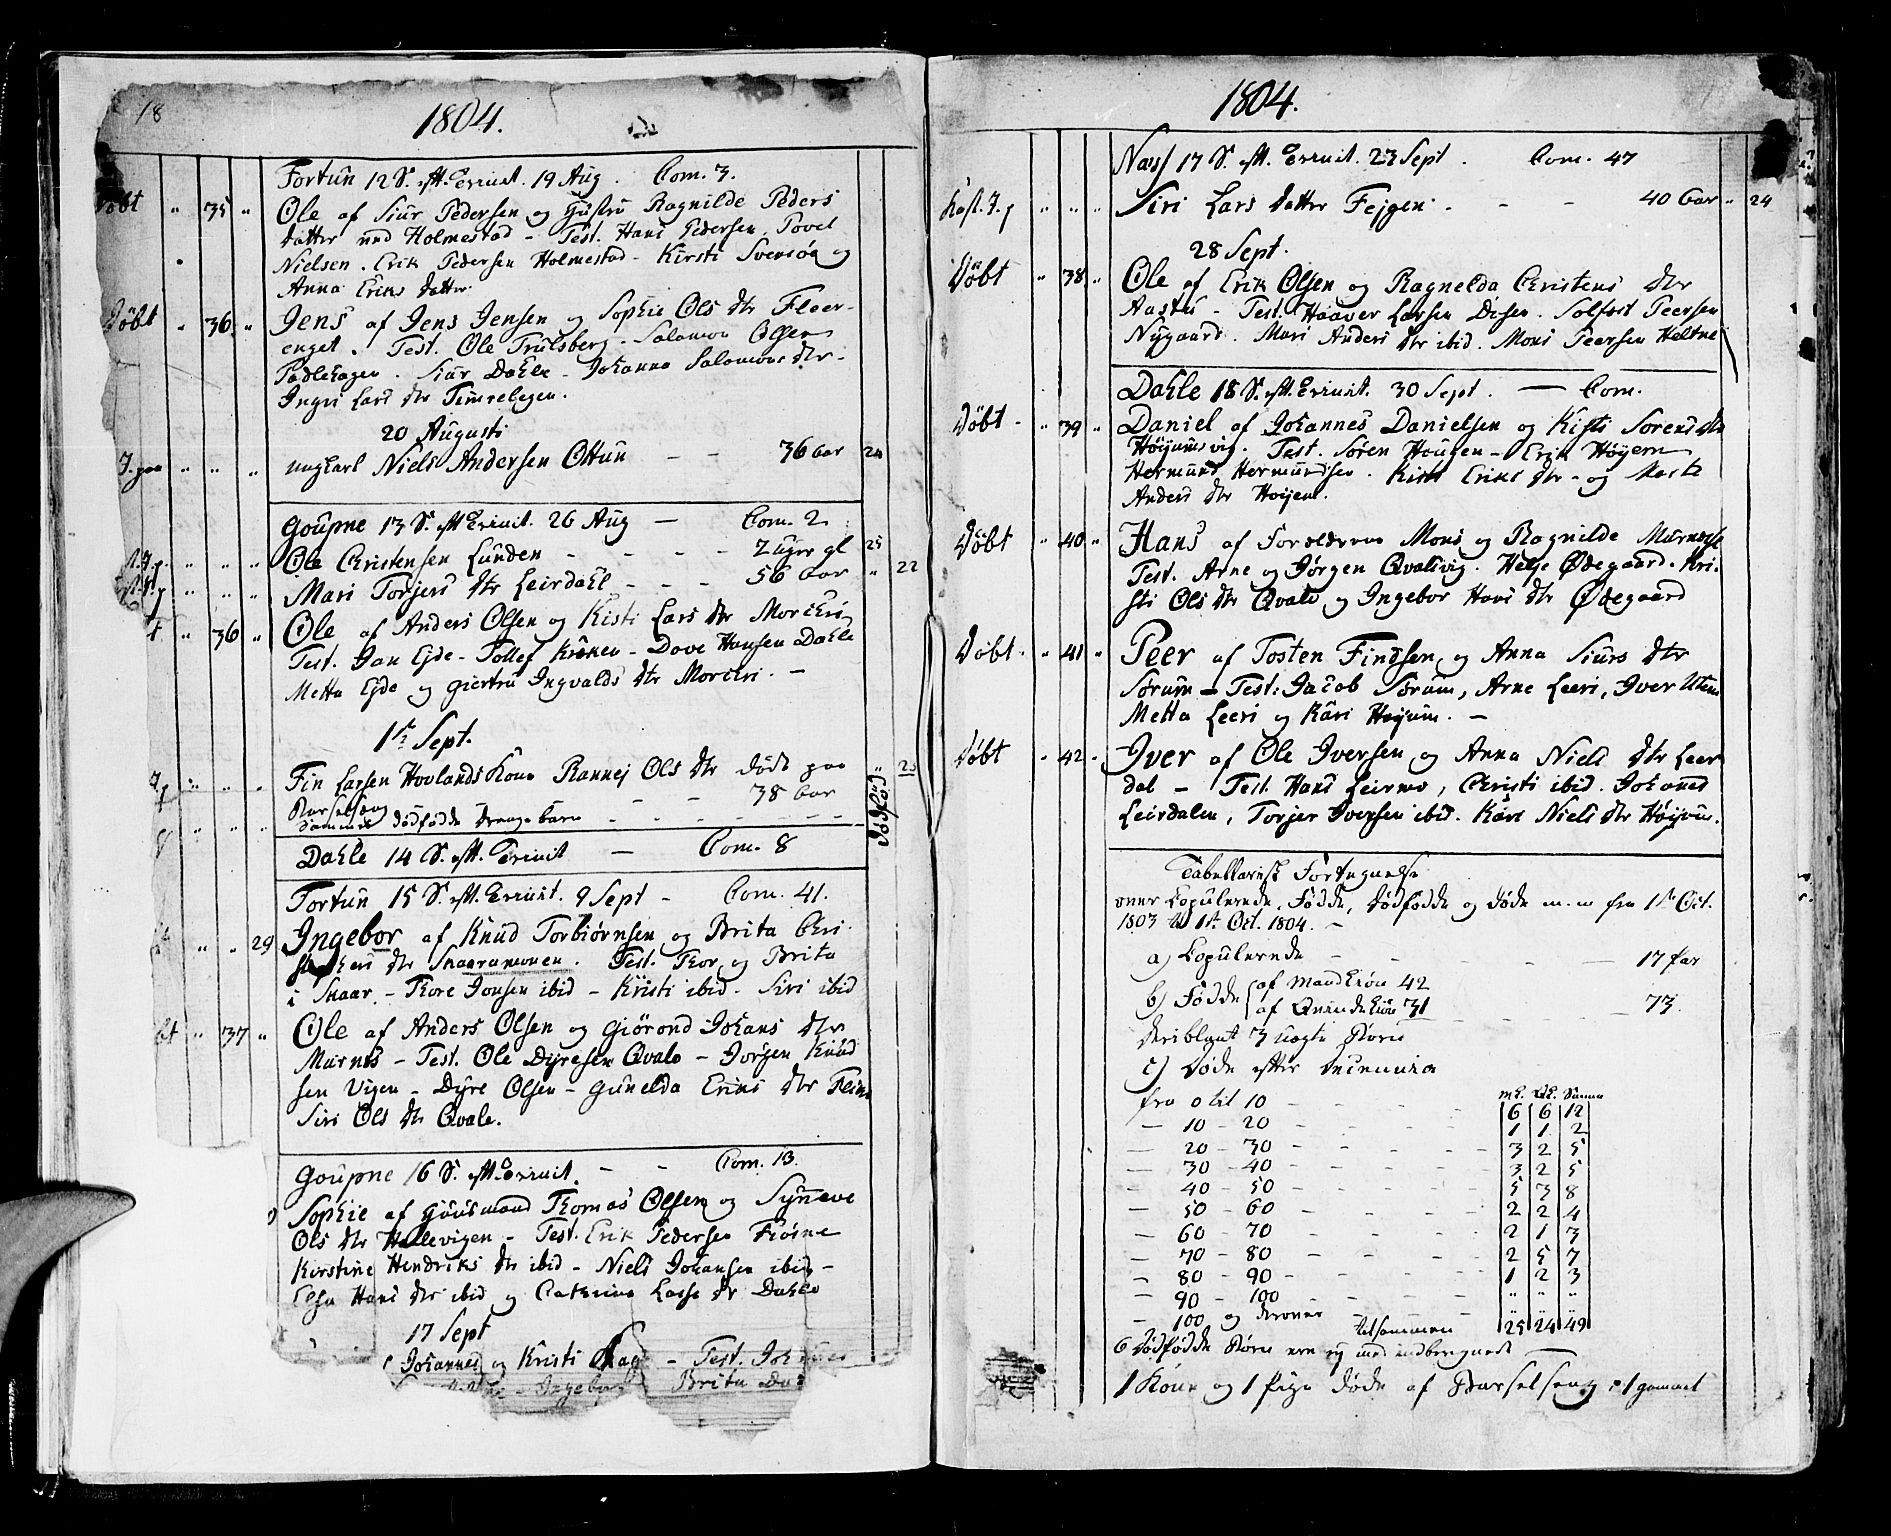 18
1804.
Fortun 12 S. eft. Trinit. 19 Aug. Com. 3.
Døbt " 35 " Ole af Siur Pedersen og Ragnilde Peders
datter Holmestad - Test. Hans Pedersen. Povel
Nielsen. Erik Pedersen Holmestad - Kirsti Svensøe og
Anna Eriks datter.
Døbt " 36 " Jens af Jens Jensen og Sophie Ols dtr Floer-
enget. Test. Ole Trulsberg. Salomon Olsen
Siur Dahle - Johanna Salomons dtr -
Ingri Lars dtr
20 Augusti
J. paa " " " ungkarl Niels Andersen Ottun - - 36 aar 24
Goupne 13 S. eft Trinit. 26 Aug - Com. 2
" " " Ole Christensen Lunden - - - - 7 uger gl 25
" " " Mari Torjers dtr Leirdahl - - - 56 aar " 22
" 36 " Ole af Anders Olsen og Kisti Lars dtr Morchri
Test. Jan Ejde - Tollef Kroken - Dove Hansen Dahle
Metta Ejde og Giertru Ingvalds dtr Morchri. -
1st Sept.
" " " Fin Larsen Hovlands Kone Rannej Ols dtr døde paa
Barselseng - - 38 aar 23
" " " sammes dødfødde drenge barn - - - - - - - dødfød
Dahle 14 S. eft. Trinit - Com. 8
Fortun 15 S. eft. Trinit. 9 Sept - Com. 41.
" " 29 Ingebor af Knud Torbiørnsen og Brita Chri-
dtr Skaaramoen. Test. Thor og Brita
i Skaar. - Thore Jonsen ibid - Kristi ibid - Siri ibid
bt " 37 " Ole af Anders Olsen og Giørond Johans dtr
Marnes - Test. Ole Dyresen Qvale - Jorgen Knud
sen Vigen - Dyre Olsen - Gunelda Eriks dtr
Siri Ols dtr Qvale.
Goupne 16 S. eft Trinit. - - Com. 13.
Sophie af Huusmand Thomas Olsen og Synneve
Ols dtr Hallevigen - Test. Erik Pedersen Fiøsne
Kirstine Hendriks dtr ibid - Niels Johansen ibid -
Elsa Hans dtr ibid og Cathrina Lasse dr Dahle
17 Sept
Johannes og Kristi - Test.
Ingebor Brita
1804.
Næss 17 S. eft. Trinit. 23 Sept. Com. 47
Kast. J. p " " " Siri Lars datter Fejgen - - - 40 aar " 24
28 Sept.
Døbt " 38 " Ole af Erik Olsen og Ragnelda Christens dtr
- Test. Haaver Larsen Solfest Peersen
Nygaard. Mari Anders dtr ibid. Mons Peersen Heltne
Dahle 18 S. eft Trinit. 30 Sept. - Com.
Døbt - " 39 " Daniel af Johannes Danielsen og Kisti Sorens dtr
Høyumsvig. Test. Søren Hougen - Erik Høyem
Hermund Hermundsen. Kisti Eriks dtr - og
Anders dtr Høyem.
Døbt " 40 " Hans af Forældrene Mons og Ragnilde
Test. Arne og Jørgen Qvalsvig. Helje Ødegaard. Kri-
sti Ols dtr Qvale og Ingebor Hans dtr Ødegaard
Døbt - " 41 " Peer af Tosten Findsen og Anna Siurs dtr
Sørum - Test: Jacob Sørum, Arne Leeri, Iver
Metta Leeri og Kari Høyum. -
Døbt " 42 " Iver af Ole Iversen og Anna Niels dtr Leer
dal - Test Hans Leirmo, Christi ibid. Johannes
Leirdalen, Torjer Iversen ibid. Kari Niels dtr Høyum.
Tabellarisk Fortegnelse
over Copulerede, Fødde, dødfødde og døde m. m fra 1st Oct.
1803 til 1st Oct. 1804. -
a) Copulerede - - - - - - 17 par
b) Fødde af Mandkiøn 42
af Qvindekiøn 31 - - - - 73
Deriblant 3 uægte Børn
c) Døde efter
mk. Qk. Summa
fra 0 til 10 - - - - 6 6 12
- 10 - 20 - - - - 1 1 2
- 20 - 30 - - - - 3 2 5
- 30 - 40 - - - - 3 2 5
- 40 - 50 - - - - 5 3 8
- 50 - 60 - - - - 2 2 4
- 60 - 70 - - - - 2 1 3
- 70 - 80 - - - - 2 5 7
- 80 - 90 - - - - 1 2 3
- 90 - 100 - - - - " " "
- 100 og derover - - " " "
tilsammen 25 24 49
6 dødfødde Børn ere ej med indberegnede
1 Kone og 1 Pige døde af Barselseng 1 gammel